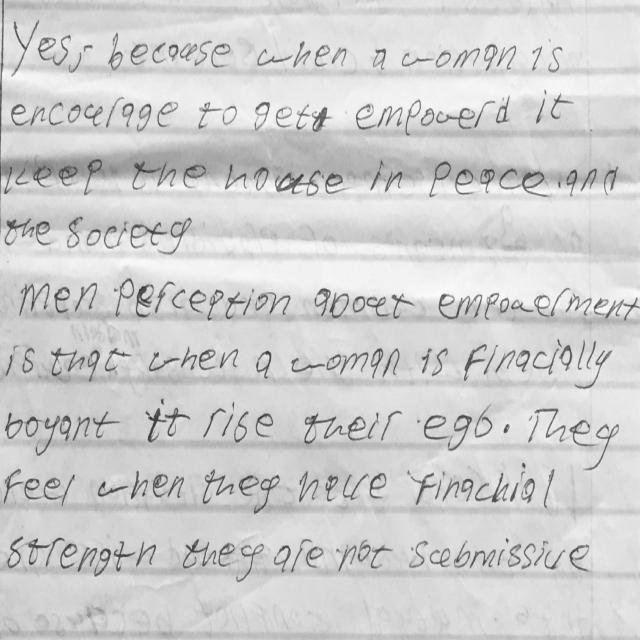 Yes, because when a woman is
encourage to get empowerd it
keep the house in peace and
the society
men perception about empowerment
is that when a woman is finacially
boyant it rise their ego. They
feel when they have finachial
strength they are not submissive